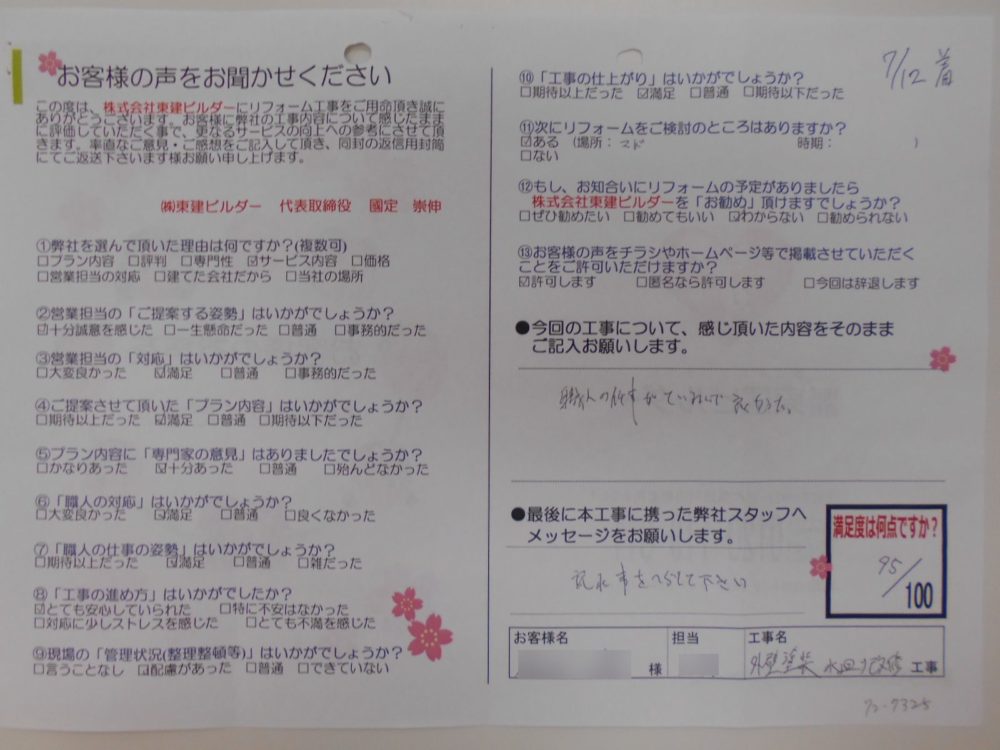 お客様の声をお聞かせください
この度は、株式会社東建ビルダーにリフォーム工事をご用命頂き誠に
ありがとうございます。お客様に弊社の工事内容について感じたまま
に評価していただく事で、更なるサービスの向上への参考にさせて頂
きます。率直なご意見・ご感想をご記入して頂き、同封の返信用封筒
にてご返送下さいます様お願い申し上げます。
㈱東建ビルダー 代表取締役 國定 崇伸
①弊社を選んで頂いた理由は何ですか?(複数可)
□プラン内容 □評判 □専門性 ☑サービス内容 □価格
□営業担当の対応 □建てた会社だから □当社の場所
②営業担当の「ご提案する姿勢」はいかがでしょうか?
☑十分誠意を感じた □一生懸命だった □普通 □事務的だった
③営業担当の「対応」はいかがでしょうか?
□大変良かった ☑満足 □普通 □事務的だった
④ご提案させて頂いた「プラン内容」はいかがでしょうか?
□期待以上だった ☑満足 □普通 □期待以下だった
⑤プラン内容に「専門家の意見」はありましたでしょうか?
□かなりあった ☑十分あった □普通 □殆んどなかった
⑥「職人の対応」はいかがでしょうか?
□大変良かった ☑満足 □普通 □良くなかった
⑦「職人の仕事の姿勢」はいかがでしょうか?
□期待以上だった ☑満足 □普通 □雑だった
⑧「工事の進め方」はいかがでしたか?
☑とても安心していられた □特に不安はなかった
□対応に少しストレスを感じた □とても不満を感じた
⑨現場の「管理状況(整理整頓等)」はいかがでしょうか?
□言うことなし ☑配慮があった □普通 □できていない
7/12 着
⑩「工事の仕上がり」はいかがでしょうか?
□期待以上だった ☑満足 □普通 □期待以下だった
⑪次にリフォームをご検討のところはありますか?
☑ある (場所: マド 時期: )
□ない
⑫もし、お知合いにリフォームの予定がありましたら
株式会社東建ビルダーを「お勧め」頂けますでしょうか?
□ぜひ勧めたい □勧めてもいい ☑わからない □勧められない
⑬お客様の声をチラシやホームページ等で掲載させていただく
ことをご許可いただけますか?
☑許可します □匿名なら許可します □今回は辞退します
●今回の工事について、感じ頂いた内容をそのまま
ご記入お願いします。
職人の仕事がていねいで良かった。
●最後に本工事に携った弊社スタッフへ
メッセージをお願いします。
をへらして下さい
満足度は何点ですか?
95/100
お客様名 担当 工事名
様 外壁塗装 水回り改修 工事
72-7325